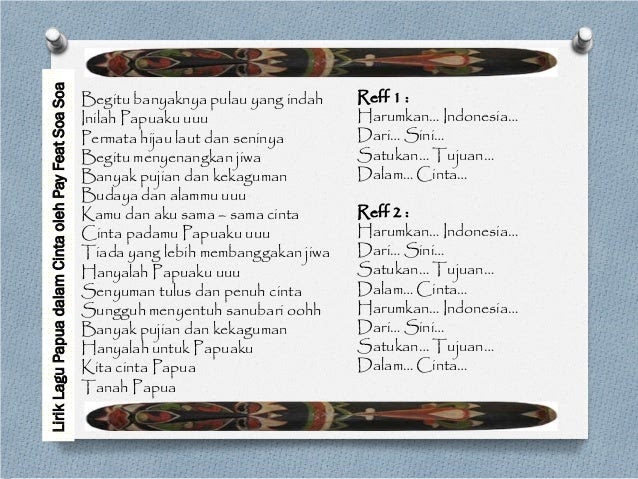 Lirik Lagu Papua dalam Cinta oleh Pay Feat Soa Soa
Begitu banyaknya pulau yang indah
Inilah Papuaku uuu
Permata hijau laut dan seninya
Begitu menyenangkan jiwa
Banyak pujian dan kekaguman
Budaya dan alammu uuu
Kamu dan aku sama – sama cinta
Cinta padamu Papuaku uuu
Tiada yang lebih membanggakan jiwa
Hanyalah Papuaku uuu
Senyuman tulus dan penuh cinta
Sungguh menyentuh sanubari oohh
Banyak pujian dan kekaguman
Hanyalah untuk Papuaku
Kita cinta Papua
Tanah Papua
Reff 1 :
Harumkan... Indonesia...
Dari... Sini...
Satukan... Tujuan...
Dalam... Cinta...
Reff 2 :
Harumkan... Indonesia...
Dari... Sini...
Satukan... Tujuan...
Dalam... Cinta...
Harumkan... Indonesia...
Dari... Sini...
Satukan... Tujuan...
Dalam... Cinta...